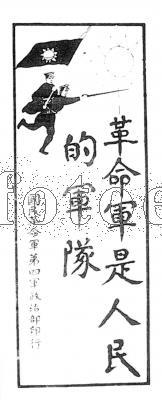 革命軍是人民
的軍隊
國民革命軍第四軍政治部印行